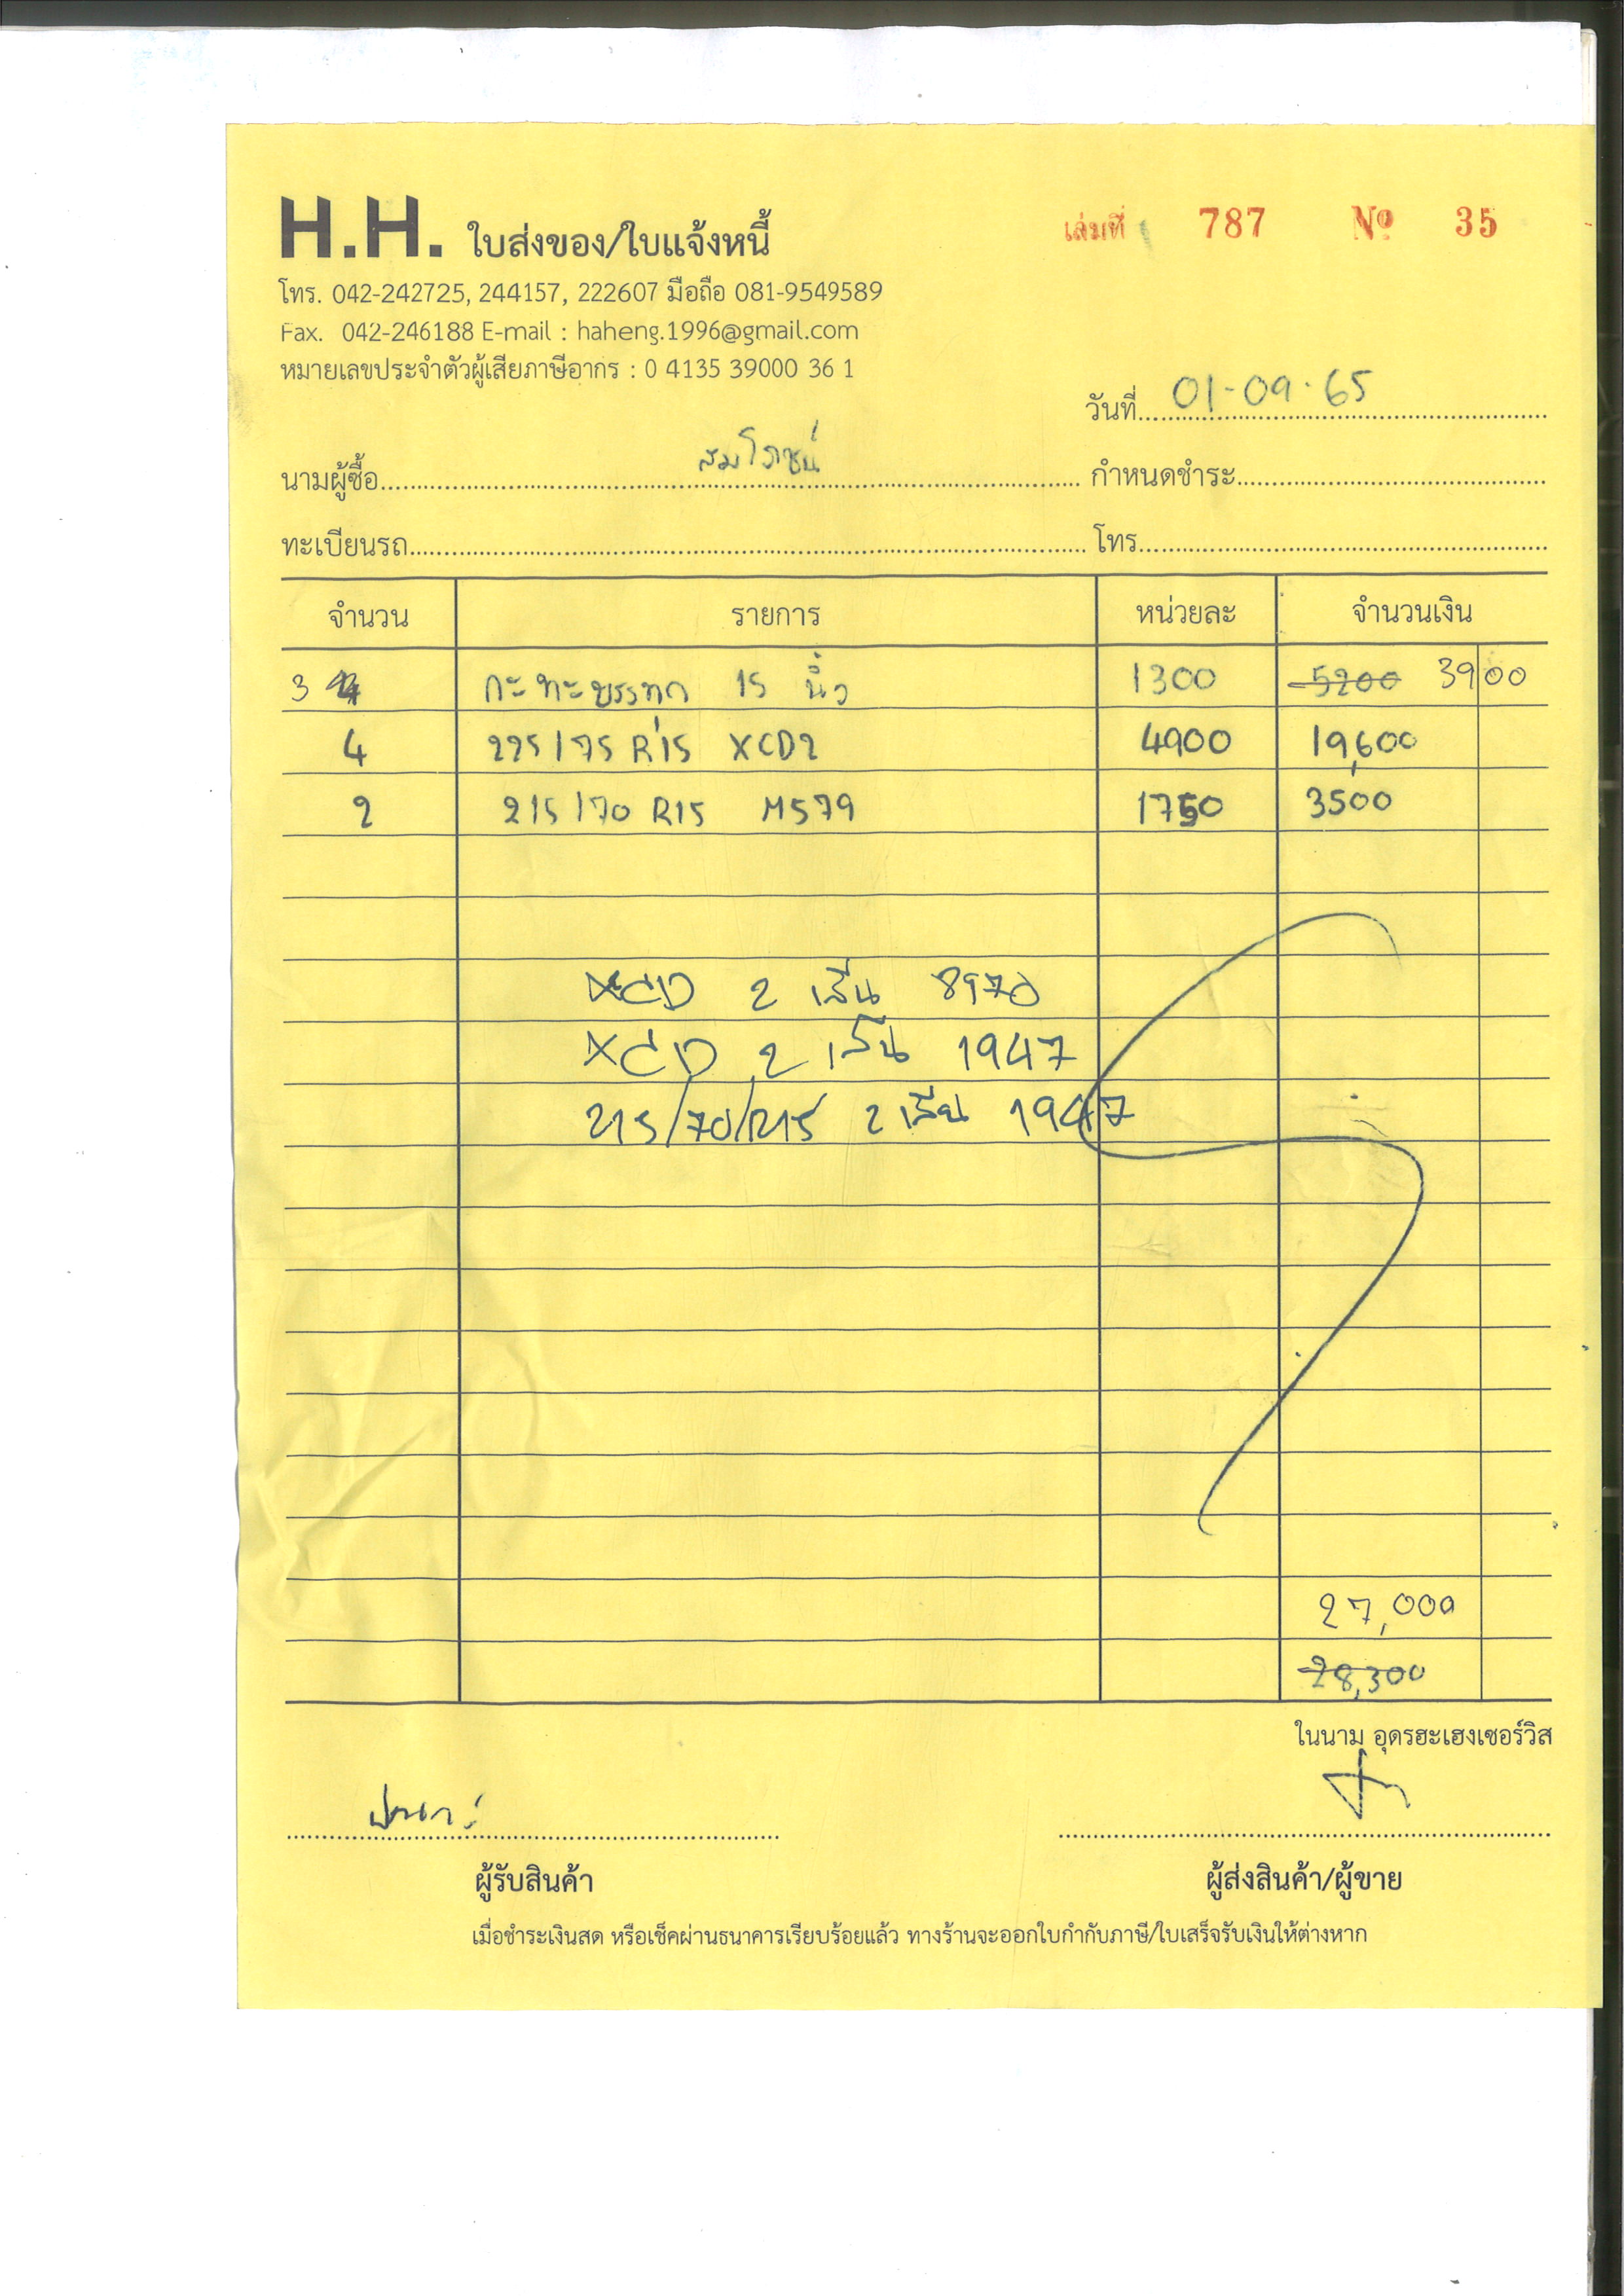 H.H. ใบส่งของ/ใบแจ้งหนี้
เล่มที่ 787 № 35
โทร. 042-242725, 244157, 222607 มือถือ 081-9549589
Fax. 042-246188 E-mail : haheng.1996@gmail.com
หมายเลขประจำตัวผู้เสียภาษีอากร : 0 4135 39000 36 1
วันที่ 01-09-65
นามผู้ซื้อ สมโภชน์ กำหนดชำระ
ทะเบียนรถ โทร.
จำนวน รายการ หน่วยละ จำนวนเงิน
3 กะทะบรรทุก 15 นิ้ว 1300 5200 3900
4 225/75 R15 XCD2 4900 19,600
2 215/70 R15 M579 1750 3500
XCD 2 เส้น 8970
XCD 2 เส้น 1947
215/70/R15 2 เส้น 1947
27,000
28,300
ในนาม อุดรฮะเฮงเซอร์วิส
ผู้รับสินค้า ผู้ส่งสินค้า/ผู้ขาย
เมื่อชำระเงินสด หรือเช็คผ่านธนาคารเรียบร้อยแล้ว ทางร้านจะออกใบกำกับภาษี/ใบเสร็จรับเงินให้ต่างหาก